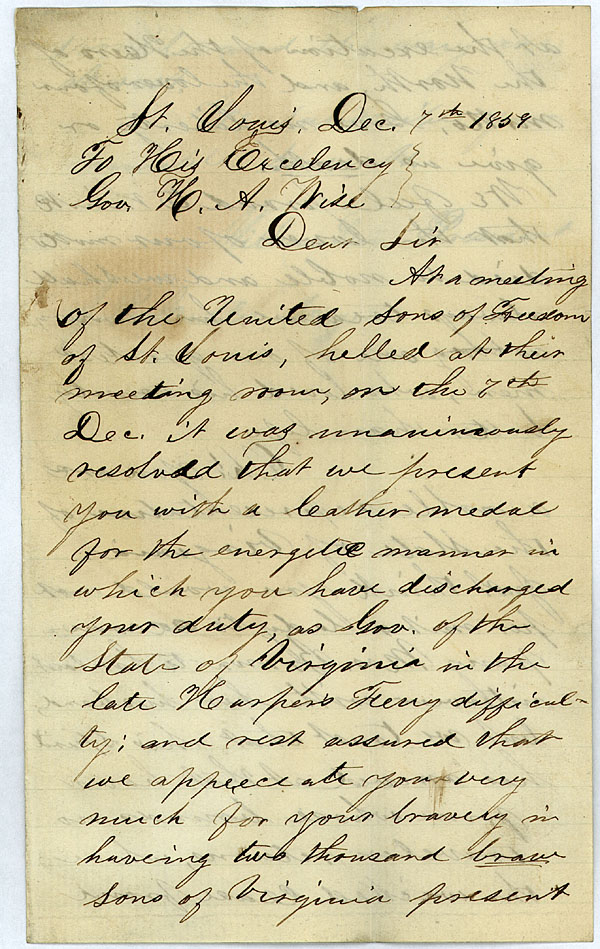 St. Louis, Dec. 7th 1859
To His Excelency
Gov. H. A. Wise
Dear Sir
At a meeting
of the United Sons of Freedom
of St. Louis, helled at their
meeting room, on the 7th
Dec. it was unanimously
resolved that we present
you with a leather medal
for the energetic manner in
which you have discharged
your duty, as Gov. of the
State of Virginia in the
late Harpers Ferry difficul-
ty; and rest assured that
we appreeceate you very
much for your bravery in
haveing two thousand brave
sons of Virginia present